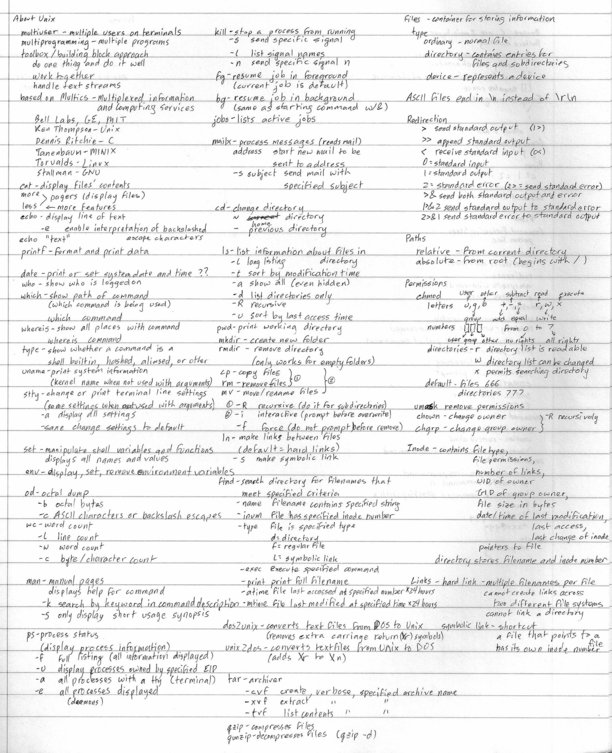 About Unix
multiuser - multiple users on terminals
multiprogramming - multiple programs
toolbox / building block approach
do one thing and do it well
work together
handle text streams
based on Multics - Multiplexed information
and computing services
Bell Labs, GE, MIT
Ken Thompson - Unix
Dennis Ritchie - C
Tanenbaum - MINIX
Torvalds - Linux
Stallman - GNU
cat - display files' contents
more > pagers (display files)
less ← more features
echo - display line of text
-e enable interpretation of backslashed
echo "text" escape characters
printf - format and print data
date - print or set system date and time ??
who - show who is logged on
which - show path of command
(which command is being used)
which command
whereis - show all places with command
whereis command
type - show whether a command is a
shell builtin, hashed, aliased, or other
uname - print system information
(kernel name when not used with arguments)
stty - change or print terminal line settings
(some settings when not used with arguments)
-a display all settings
-sane change settings to default
set - manipulate shell variables and functions
displays all names and values
env - display, set, remove environment variables
od - octal dump
-b octal bytes
-c ASCII characters or backslash escapes
wc - word count
-l line count
-w word count
-c byte / character count
man - manual pages
displays help for command
-k search by keyword in command description
-s only display short usage synopsis
ps - process status
(display process information)
-f full listing (all information displayed)
-u display processes owned by specified EIP
-a all processes with a tty (terminal)
-e all processes displayed
(daemons)
kill - stop a process from running
-s send specific signal
-l list signal names
-n send specific signal n
fg - resume job in foreground
(current job is default)
bg - resume job in background
(same as starting command w/&)
jobs - lists active jobs
mailx - process messages (reads mail)
address start new mail to be
sent to address
-s subject send mail with
specified subject
cd - change directory
~ home directory
- previous directory
ls - list information about files in
-l long listing directory
-t sort by modification time
-a show all (even hidden)
-d list directories only
-R recursive
-u sort by last access time
pwd - print working directory
mkdir - create new folder
rmdir - remove directory
(only works for empty folders)
cp - copy files
rm - remove files } ①
mv - move/rename files } ②
① -R recursive (do it for subdirectories)
② -i interactive (prompt before overwrite)
-f force (do not prompt before remove)
ln - make links between files
(default = hard links)
-s make symbolic link
find - search directory for filenames that
meet specified criteria
-name filename contains specified string
-inum file has specified inode number
-type file is specified type
d: directory
f: regular file
l: symbolic link
-exec execute specified command
-print print full filename
-atime file last accessed at specified number *24 hours
-mtime file last modified at specified time *24 hours
dos2unix - converts text files from DOS to Unix
(removes extra carriage return (\r) symbols)
unix2dos - converts text files from Unix to DOS
(adds \r to \n)
tar - archiver
-cvf create, verbose, specified archive name
-xvf extract " "
-tvf list contents " "
gzip - compresses files
gunzip - decompresses files (gzip -d)
Files - container for storing information
type
ordinary - normal file
directory - contains entries for
files and subdirectories
device - represents a device
Ascii files end in \n instead of \r\n
Redirection
> send standard output (1>)
>> append standard output
< receive standard input (0<)
0 = standard input
1 = standard output
2 = standard error (2> = send standard error)
>& send both standard output and error
1>&2 send standard output to standard error
2>&1 send standard error to standard output
Paths
relative - from current directory
absolute - from root (begins with /)
Permissions
chmod user other subtract read execute
letters u, g, o +, -, = r, w, x
group add equal write
numbers □□□ from 0 to 7
user group other no rights all rights
directories - r directory list is readable
w directory list can be changed
x permits searching directory
default - files 666
directories 777
umask remove permissions
chown - change owner
chgrp - change group owner } -R recursively
Inode - contains file type,
file permissions,
number of links,
UID of owner
GID of group owner,
file size in bytes
date/time of last modification,
last access,
last change of inode
pointers to file
directory stores filename and inode number
Links - hard link - multiple filenames per file
cannot create links across
two different file systems
cannot link a directory
symbolic link - shortcut
a file that points to a
file
has its own inode number